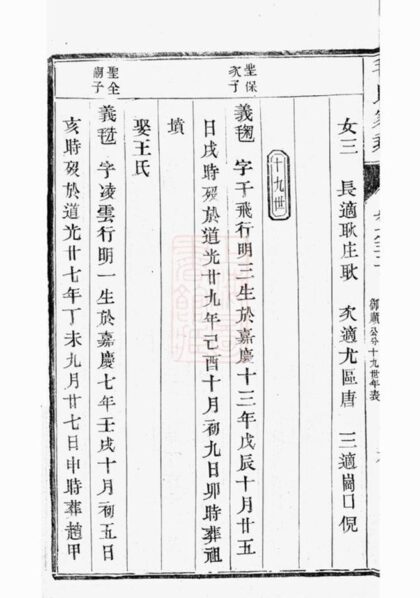 御題公分十九世年表
女三　長適耿庄耿　次適尤區唐　三適崗口倪
十九世
聖保次子
義毱　字干飛行明三生於嘉慶十三年戊辰十月廿五
日戌時歿於道光廿九年己酉十月初九日卯時葬祖
墳
娶王氏
聖全嗣子
字凌雲行明一生於嘉慶七年壬戌十月初五日
亥時歿於道光廿七年丁未九月廿七日申時葬趙甲